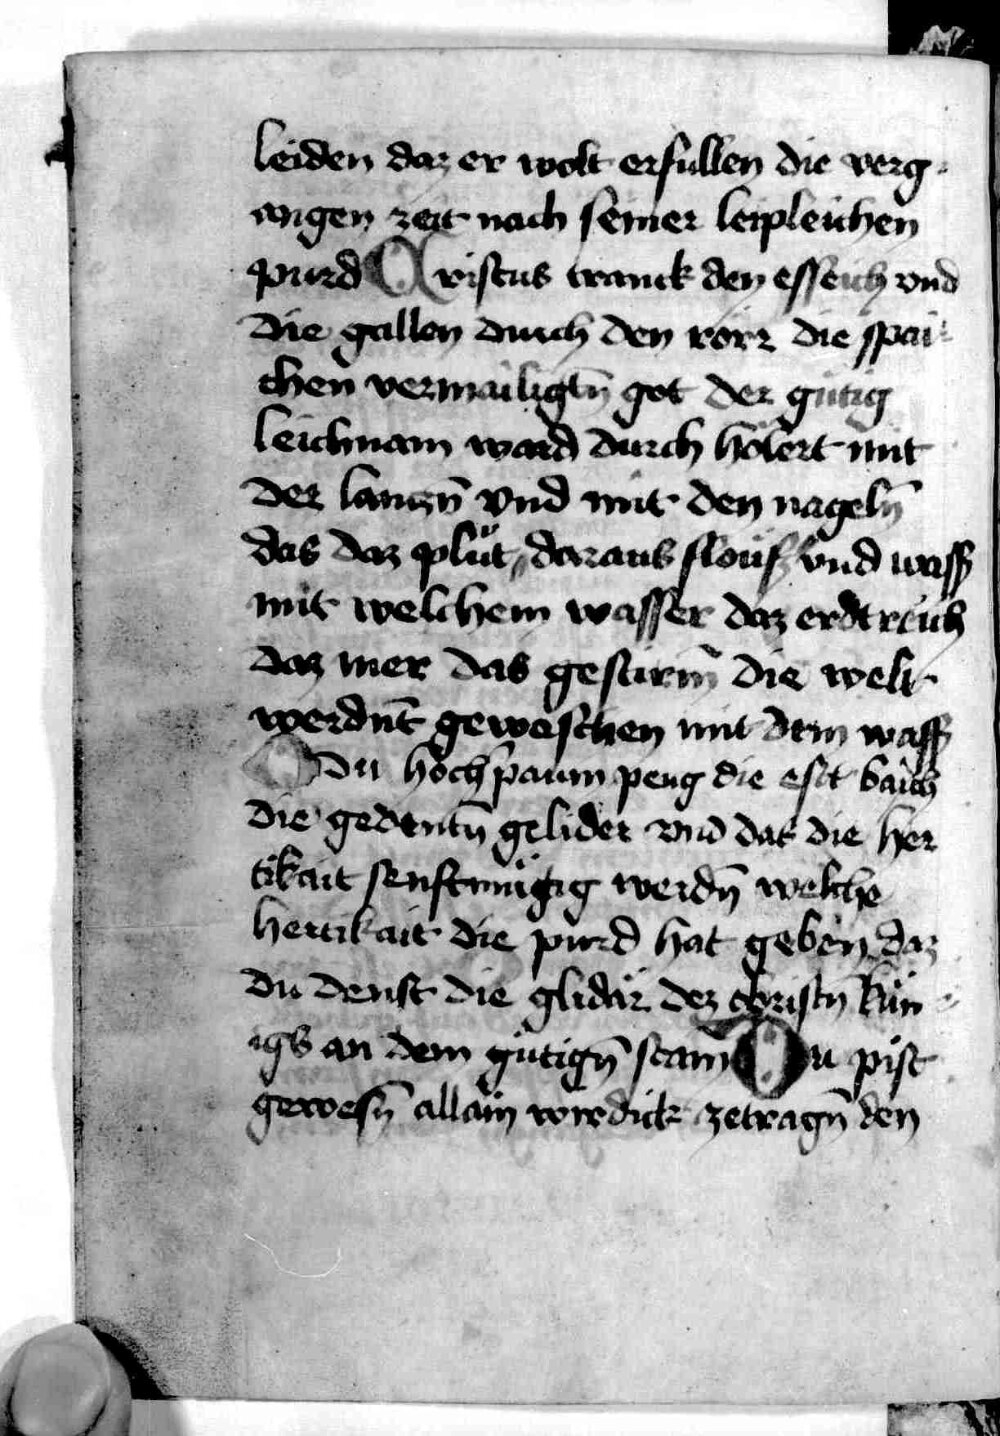 leiden daz er wolt erfullen die verg-
angen zeit nach seiner leipleichen
purd Xristus tranck den esseich vnd
die gallen durch den rörr die spai-
chen vermailigtn̄ got der gütig
leichnam ward durch hölert mit
der lanczn̄ vnd mit den nageln̄
das daz plüt daraus flouss vnd wass
mit welchem wasser daz erdtreich
daz mer das gestirn̄ die welt
werdnt̄ geweschen mit dem wass
O Du höch paum peug die est baich
die gedentn̄ gelider vnd das die her
tikait senftmütig werdn̄ welche
hertikait die purd hat geben daz
du denst die glidär dez christn̄ kün-
igs an dem gütign̄ stam̄ Du pist
gewesn̄ alläin wirdick zetragn̄ den